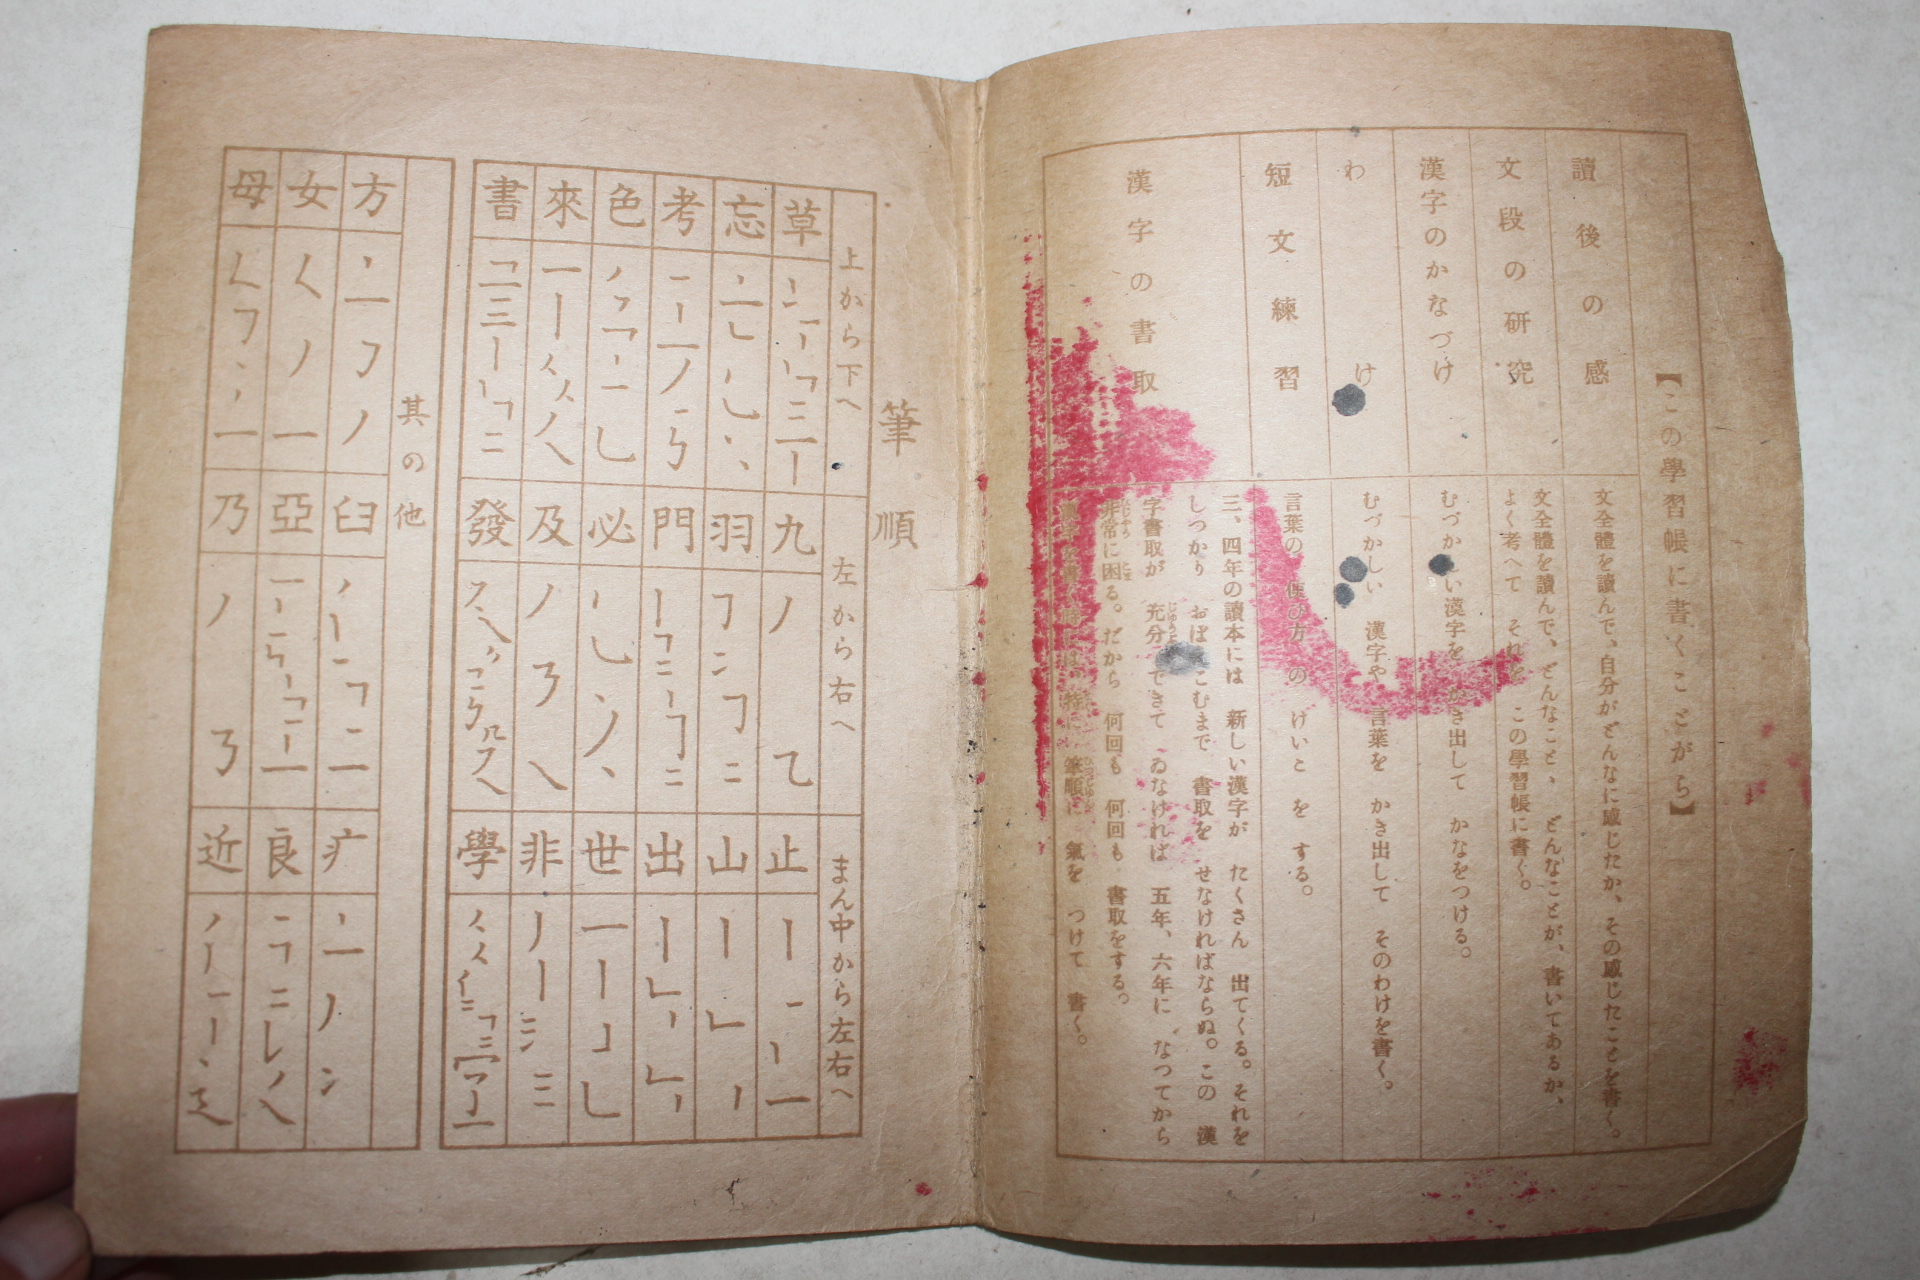 【この學習帳に書くことがら】
讀後の感
文全體を讀んで、自分がどんなに感じたか、その感じたことを書く。
文段の研究
文全體を讀んで、どんなこと、どんなことが、書いてあるか、
よく考へて それを この學習帳に書く。
漢字のかなづけ
むづかしい漢字を かき出して かなをつける。
わけ
むづかしい 漢字や 言葉を かき出して そのわけを書く。
短文練習
言葉の 使ひ方 の けいこ を する。
漢字の書取
三、四年の讀本には 新しい漢字が たくさん 出てくる。それを
しつかり おぼえこむまで 書取を せなければならぬ。この 漢
字書取が 充分できて ゐなければ 五年、六年に なつてから
非常に困る。だから 何回も 何回も 書取をする。
漢字を書く時には 特に 筆順に 氣を つけて 書く。
筆順
上から下へ
左から右へ
まん中から左右へ
草 九 止
忘 羽 山
考 門 出
色 必 世
來 及 非
書 發 學
其の他
方 臼 疒
女 亞 良
母 乃 近